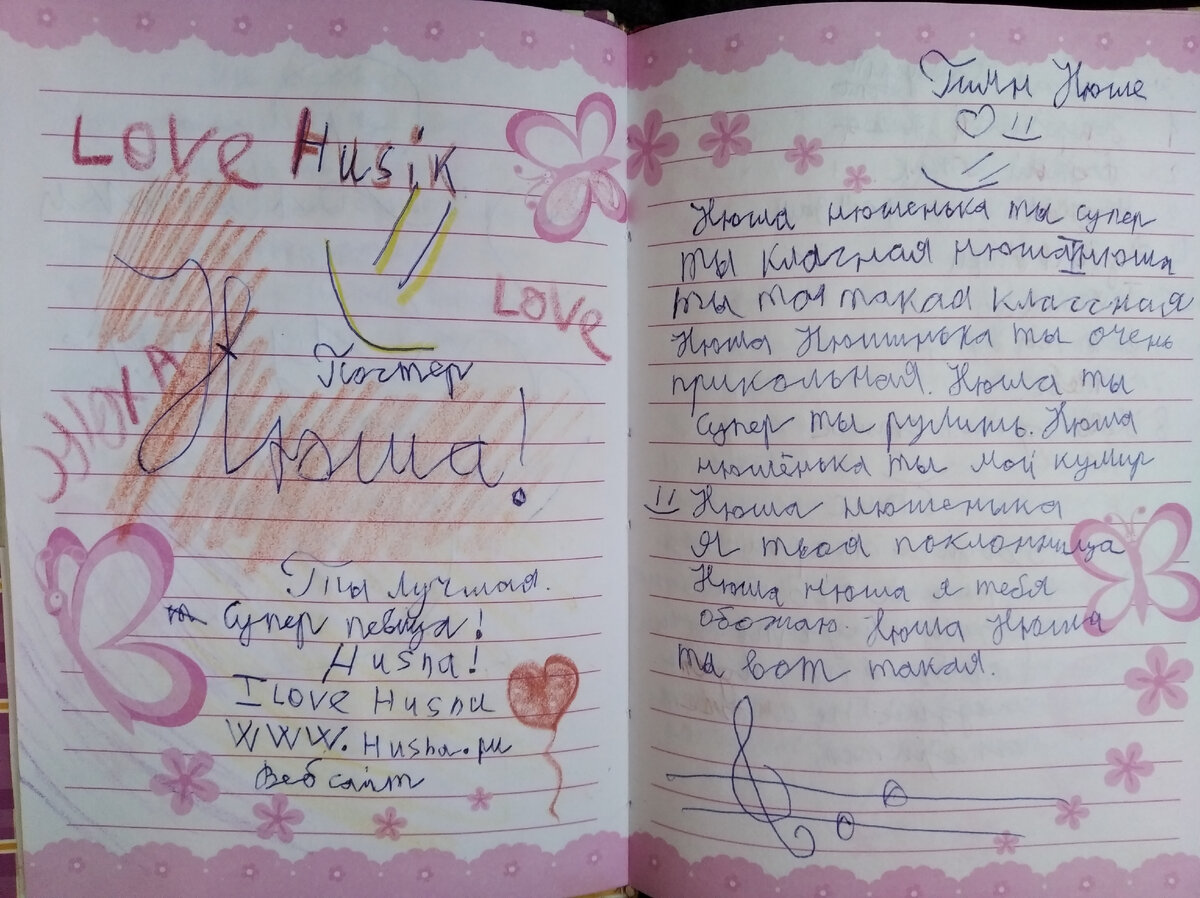 LOVE Husiк
LOVE
Постер
Нюша!
Ты лучшая.
Супер певица!
Husha!
I LOVE Husnu
WWW. Husha.ru
Веб сайт
Гимн Нюше
Нюша нюшенька ты супер
ты классная нюша нюша
ты такая классная
Нюша Нюшинька ты очень
прикольная. Нюша ты
супер ты рулишь. Нюша
нюшёнька ты мой кумир
Нюша нюшенька
Я твоя поклонница
Нюша нюша я тебя
обожаю. Нюша Нюша
ты вот такая.